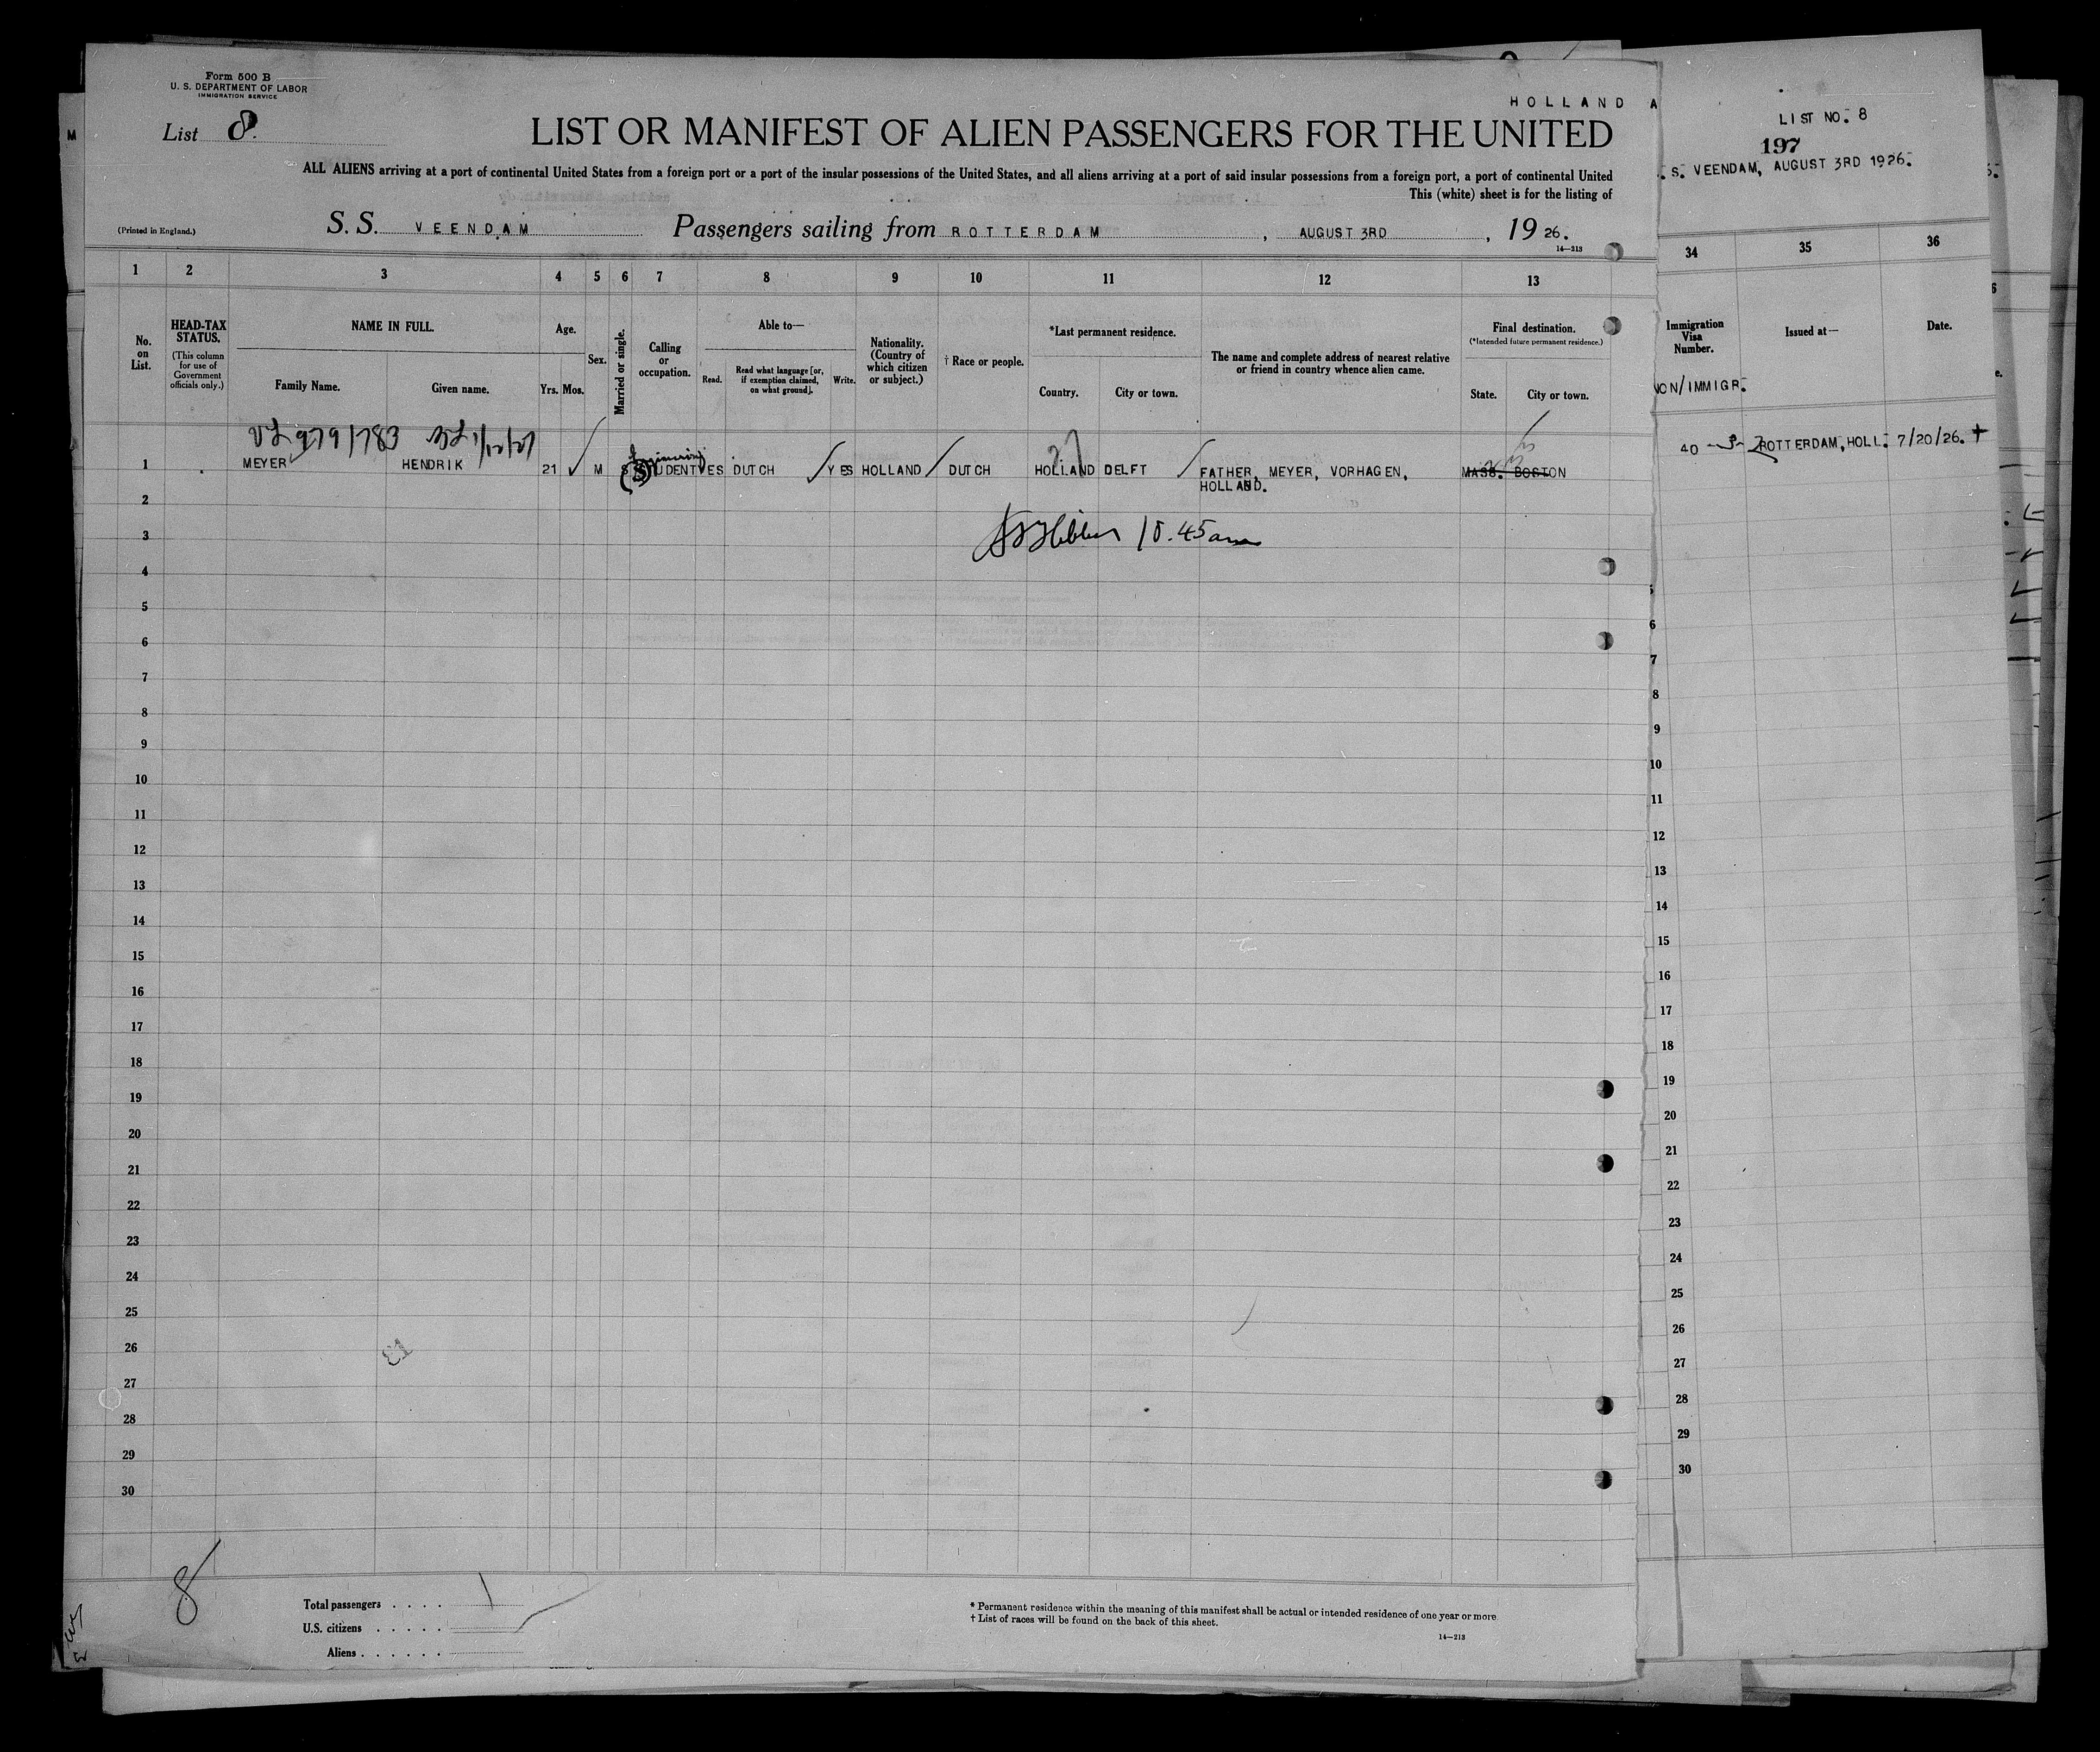 Form 500 B
U. S. DEPARTMENT OF LABOR
IMMIGRATION SERVICE
HOLLAND A
List 8.
LIST OR MANIFEST OF ALIEN PASSENGERS FOR THE UNITED
ALL ALIENS arriving at a port of continental United States from a foreign port or a port of the insular possessions of the United States, and all aliens arriving at a port of said insular possessions from a foreign port, a port of continental United
This (white) sheet is for the listing of
(Printed in England.)
S. S. VEENDAM Passengers sailing from ROTTERDAM, AUGUST 3RD, 1926.
14—213
LIST NO. 8
197
. S. VEENDAM, AUGUST 3RD 1926.
1 2 3 4 5 6 7 8 9 10 11 12 13
34 35 36
No. on List.
HEAD-TAX STATUS.
(This column for use of Government officials only.)
NAME IN FULL.
Family Name. Given name.
Age.
Yrs. Mos.
Sex.
Married or single.
Calling or occupation.
Able to—
Read. Read what language [or, if exemption claimed, on what ground]. Write.
Nationality. (Country of which citizen or subject.)
† Race or people.
*Last permanent residence.
Country. City or town.
The name and complete address of nearest relative or friend in country whence alien came.
Final destination.
(*Intended future permanent residence.)
State. City or town.
Immigration Visa Number.
NON/IMMIGR.
Issued at—
Date.
1 MEYER HENDRIK 21 M S STUDENT YES DUTCH YES HOLLAND DUTCH HOLLAND DELFT FATHER, MEYER, VORHAGEN, MASS. BOSTON
HOLLAND.
40 ROTTERDAM, HOLL. 7/20/26.
10.45 am
2
3
4
5
6
7
8
9
10
11
12
13
14
15
16
17
18
19
20
21
22
23
24
25
26
27
28
29
30
5
6
7
8
9
10
11
12
13
14
15
16
17
18
19
20
21
22
23
24
25
26
27
28
29
30
8
Total passengers . . . . 1
U.S. citizens . . . . .
Aliens . . . . . .
* Permanent residence within the meaning of this manifest shall be actual or intended residence of one year or more
† List of races will be found on the back of this sheet.
14—213